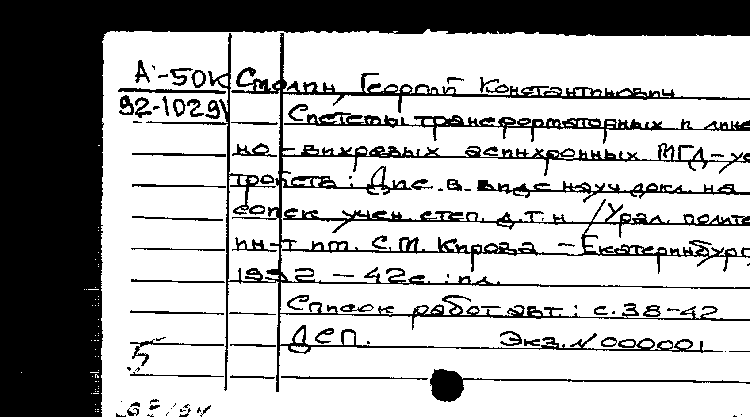 А-50К Смолин, Георгий Константинович
92-10291 Системы трансформаторных и лине
но-вихревых асинхронных МГД-ус
тройств: Дис. в виде науч. докл. на
соиск. учен. степ. д.т.н. /Урал. полите
ин-т им. С.М. Кирова. - Екатеринбург,
1992. - 42с.: ил.
Список работ авт.: с.38-42
ДСП. Экз. N 000001
5